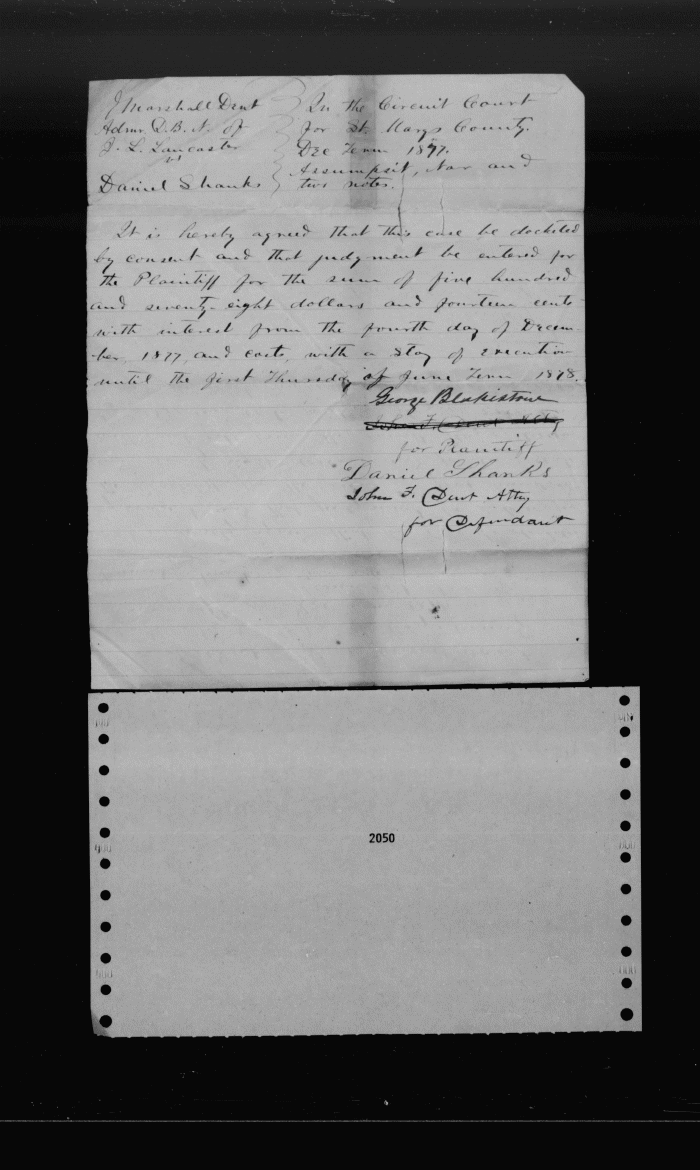 J Marshall Dent
Admr. D. B. N. of
J. L. Lancaster
vs
Daniel Shanks
In the Circuit Court
for St. Marys County.
Dec Term 1877.
Assumpsit, Nar and
two notes.
It is hereby agreed that this case be docketed
by consent and that judgment be entered for
the Plaintiff for the sum of five hundred
and seventy-eight dollars and fourteen cents
with interest from the fourth day of Decem-
ber, 1877, and costs, with a stay of execution
until the first Thursday of June Term 1878.
George Blakistone
John F. Dent Atty
for Plaintiff
Daniel Shanks
John F. Dent Atty
for Defendant
2050